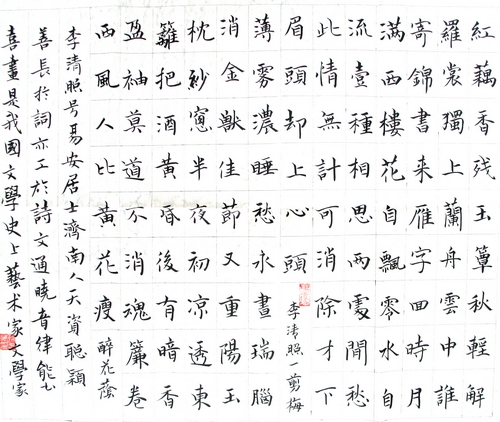 紅藕香残玉簟秋輕解
羅裳獨上蘭舟雲中誰
寄錦書来雁字回時月
满西樓花自飄零水自
流壹種相思两處閒愁
此情無計可消除才下
眉頭却上心頭 李清照一剪梅
薄雾濃睡愁永晝瑞腦
消金獸佳節又重陽玉
枕紗窓半夜初凉透東
籬把酒黄昏後有暗香
盈袖莫道不消魂簾卷
西風人比黄花瘦 醉花蔭
李清照号易安居士濟南人天資聪颖
善長於詞亦工於詩文通曉音律能书
喜畫是我國文學史上藝术家文學家